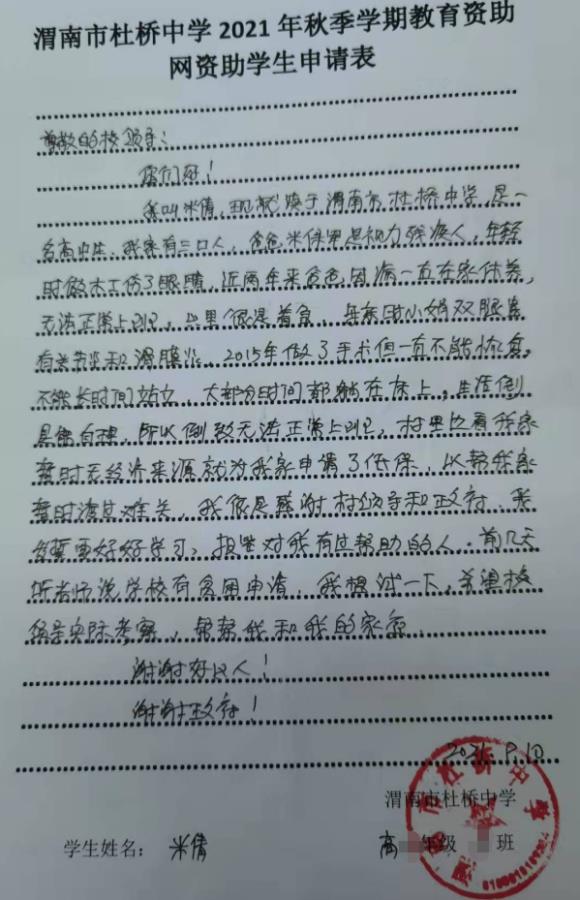 渭南市杜桥中学2021年秋季学期教育资助
网资助学生申请表
尊敬的校领导：
你们好！
我叫米倩，现就读于渭南市杜桥中学，是一
名高中生，我家有三口人，爸爸米保军是视力残疾人，年轻
时做木工伤了眼睛，近两年来爸爸因病一直在家休养，
无法正常上班，家里很是着急，母亲田小娟双腿患
有关节炎和滑膜炎，2015年做了手术但一直不能恢复，
不能长时间站立，大部分时间都躺在床上，生活倒
是能自理，所以倒致无法正常上班，村里边看我家
暂时无经济来源就为我家申请了低保，以帮我家
暂时渡过难关，我很是感谢村领导和政府，我
发誓要好好学习，报答对我有过帮助的人．前几天
听老师说学校有贫困申请，我想试一下，希望校
领导实际考察，帮帮我和我的家庭
谢谢好心人！
谢谢政府！
2021.9.10
渭南市杜桥中学
学生姓名：米倩 高 年级 班